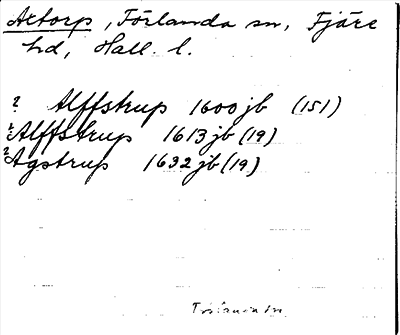 Artorp, Förlanda sn, Fjäre
hd, Hall. l.
? Alffstrup 1600 jb (151)
? Alffstrup 1613 jb (19)
? Agstrup 1632 jb (19)